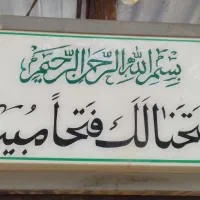 بِسْمِ اللهِ الرَّحْمٰنِ الرَّحِيْمِ
تَحْنَا لَكَ فَتْحاً مُبِيـ